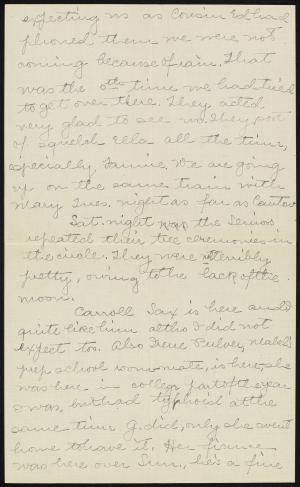 expecting us as Cousin Ed had
phoned them we were not
coming because of rain. That
was the 6th time we had tried
to get over there. They acted
very glad to see us. They sort
of squelch Ella all the time,
especially Fannie. We are going
up on the same train with
Mary Tues. night as far as Canton.
Sat. night was the Seniors
repeated their tree ceremonies in
the circle. They were not terribly
pretty, owing to the lack of the
moon.
Carroll Sax is here and I
quite like him altho I did not
expect to. Also Irene Pulver, Mabel's
prep school roommate, is here, she
was here in college part of the year
I was, but had typhoid at the
same time G. did, only she went
home to have it. Her fiance
was here over Sun., he's a fine